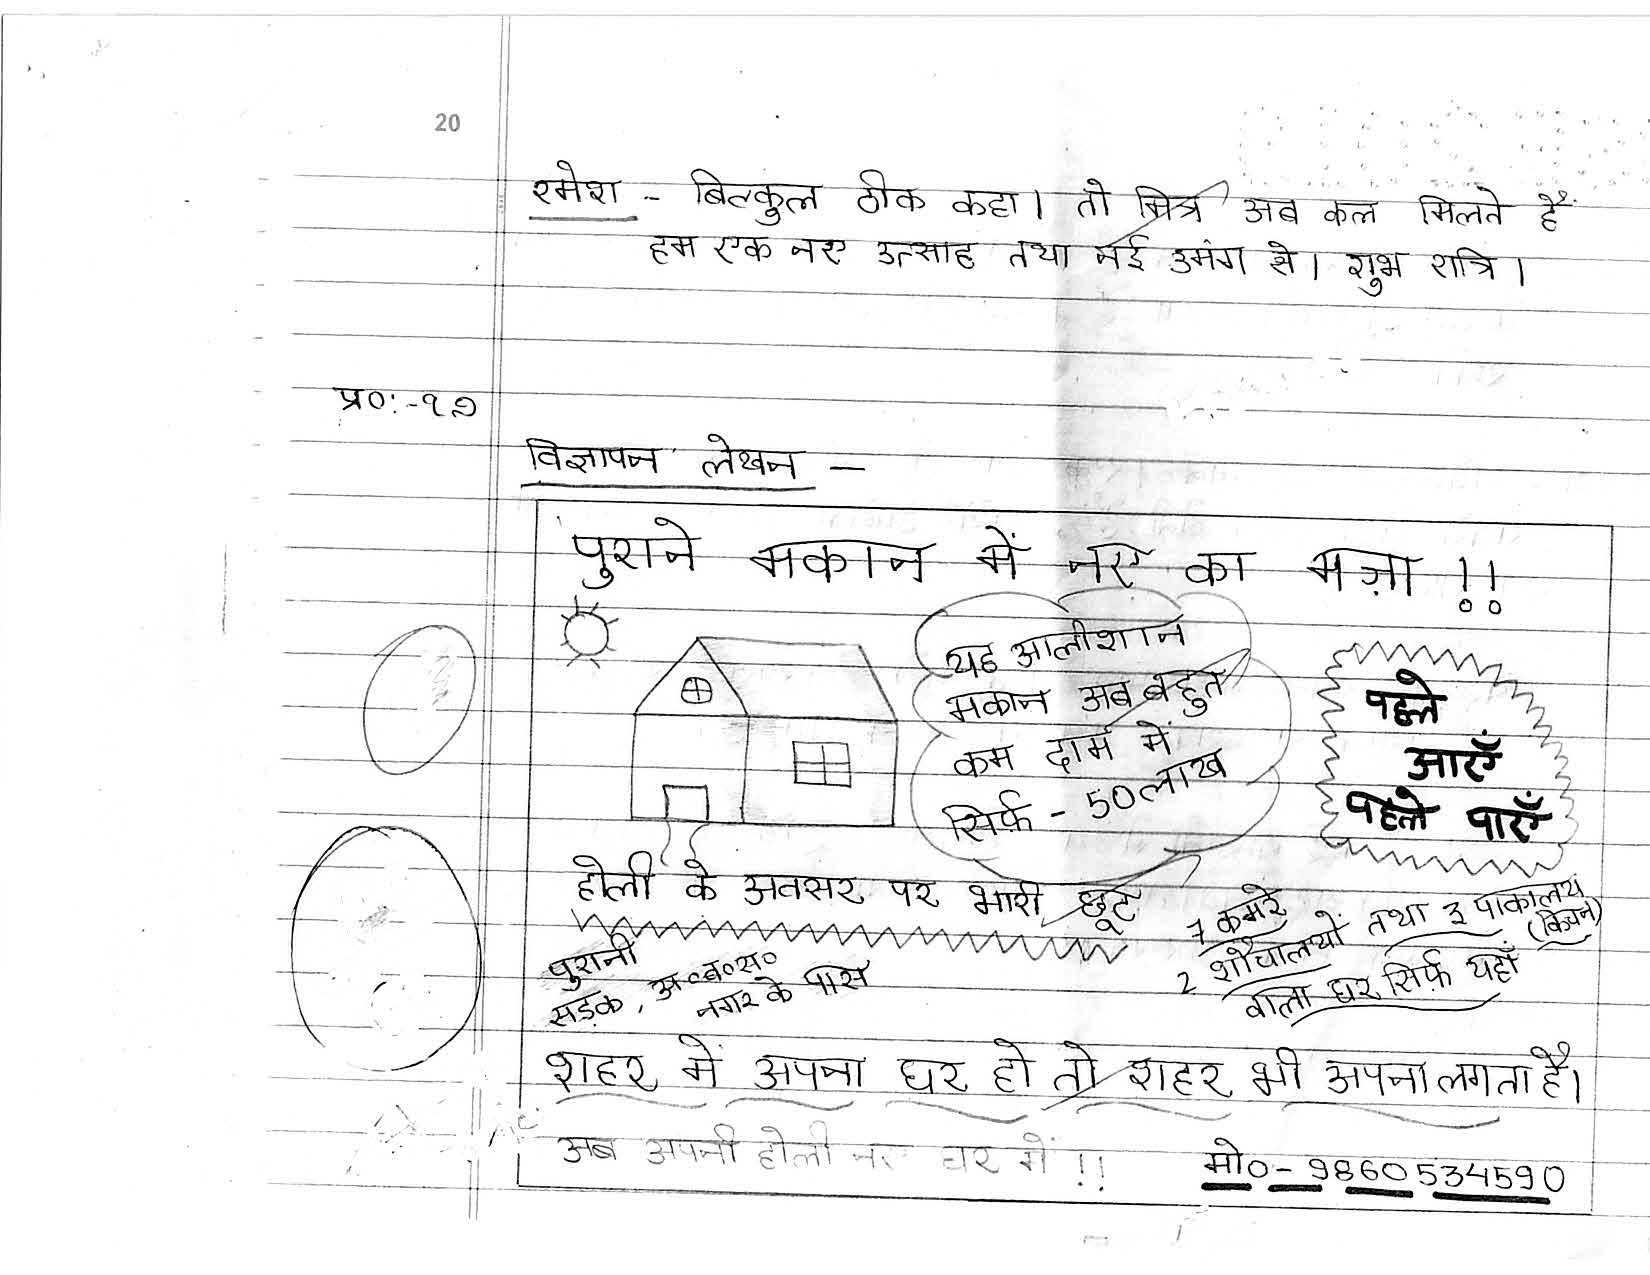 20
रमेश - बिल्कुल ठीक कहा। तो मित्र अब कल मिलते हैं
हम एक नए उत्साह तथा नई उमंग से। शुभ रात्रि।
प्र०:-१७
विज्ञापन लेखन –
पुराने मकान में नए का मज़ा !!
यह आलीशान
मकान अब बहुत
कम दाम में
सिर्फ़ - 50 लाख
पहले
आएँ
पहले पाएँ
होली के अवसर पर भारी छूट
पुरानी
सड़क, अ०ब०स०
नगर के पास
7 कमरे
2 शौचालयों तथा 3 पाकालय
(किचन)
वाला घर सिर्फ़ यहाँ
शहर में अपना घर हो तो शहर भी अपना लगता है।
अब अपनी होली नए घर में !!
मो०- 9860534590